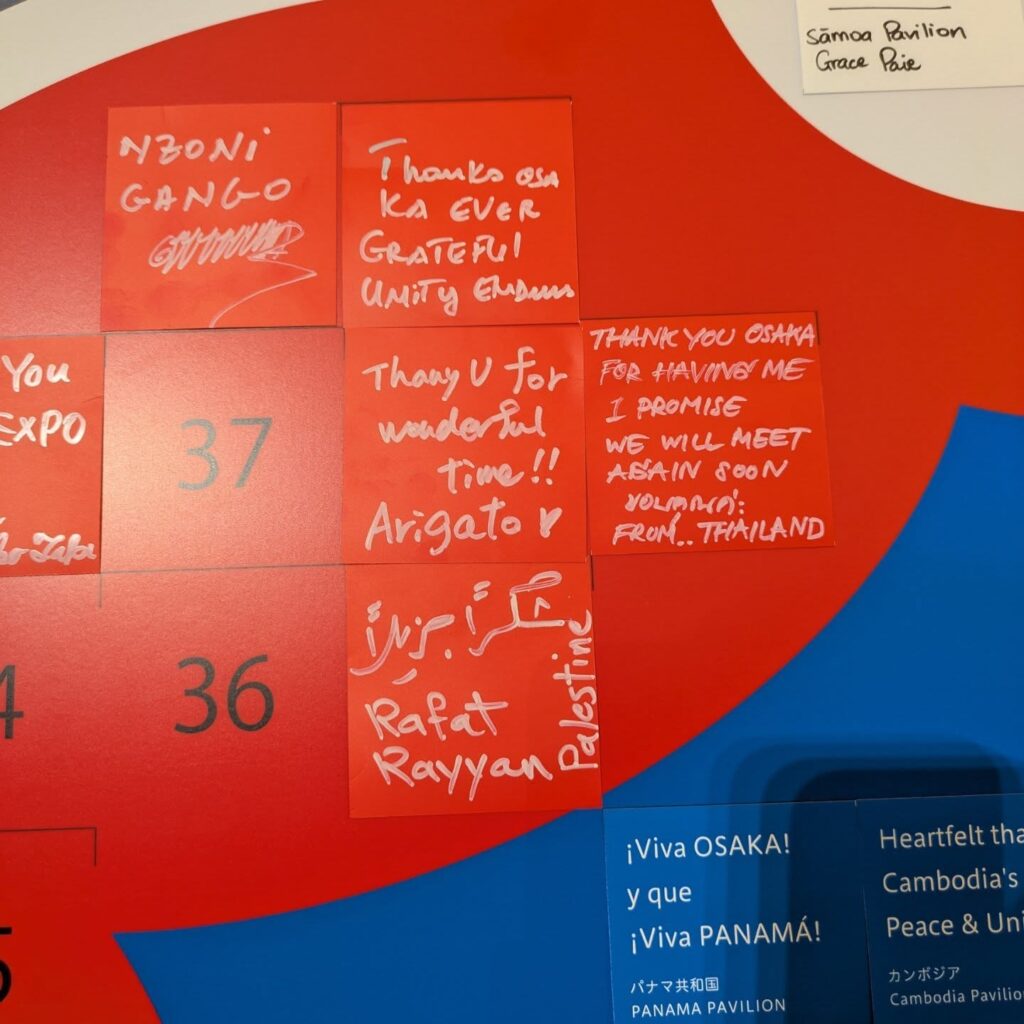 Sāmoa Pavilion
Grace Paie
NZONI
GANGO
Thanks OSA
KA EVER
GRATEFUl
UNiTy
You
EXPO
37
Thany U for
wonderful
time!!
Arigato
THANK YOU OSAKA
FOR HAVING ME
I PROMISE
WE WILL MEET
AGAIN SOON
FROM.. THAILAND
4
36
شكراً جزيلاً
Rafat
Rayyan
Palestine
5
¡Viva OSAKA!
y que
¡Viva PANAMÁ!
パナマ共和国
PANAMA PAVILION
Heartfelt tha
Cambodia's
Peace & Uni
カンボジア
Cambodia Pavilio